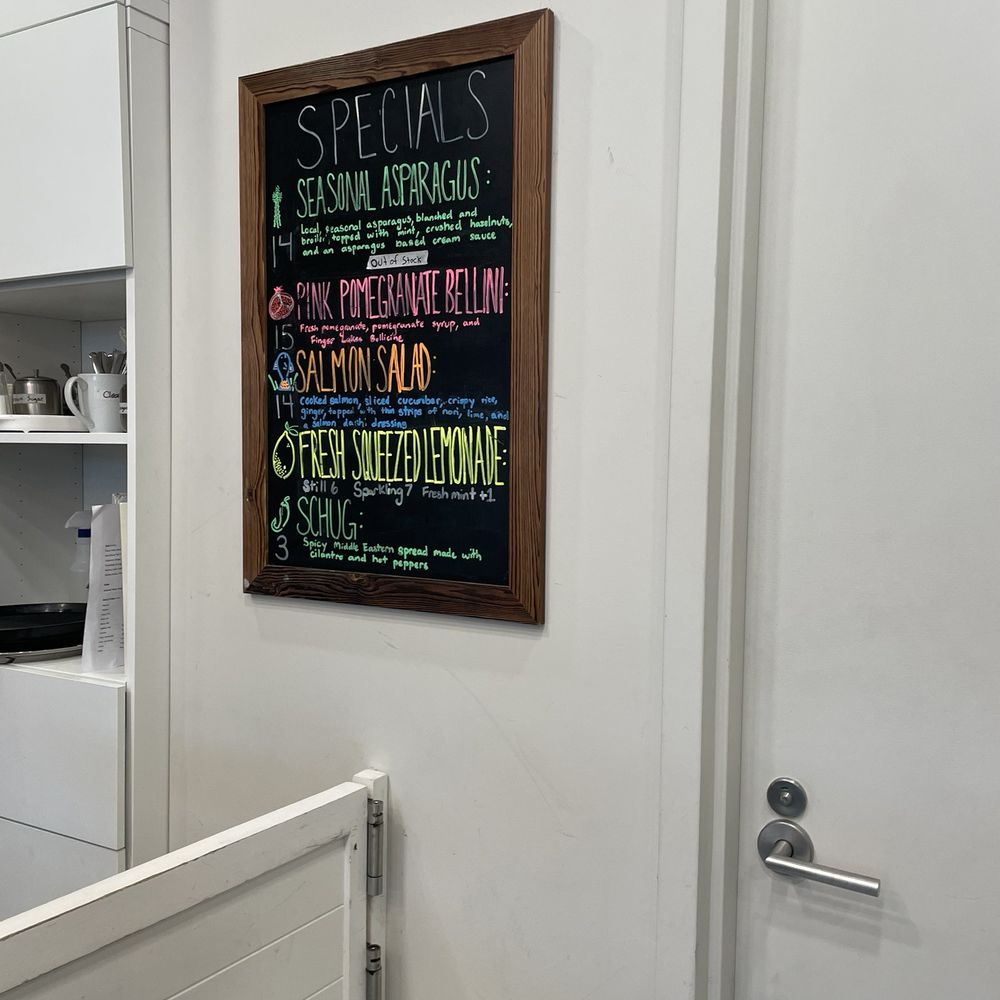 SPECIALS
SEASONAL ASPARAGUS:
Local, seasonal asparagus, blanched and
broiled, topped with mint, crushed hazelnuts,
and an asparagus based cream sauce
14
Out of Stock
PINK POMEGRANATE BELLINI:
Fresh pomegranate, pomegranate syrup, and
Finger Lakes Bollicine
15
SALMON SALAD:
14
Cooked salmon, sliced cucumber, crispy rice,
ginger, topped with thin strips of nori, lime, and
a salmon dashi dressing
FRESH SQUEEZED LEMONADE:
Still 6 Sparkling 7 Fresh mint +1
SCHUG:
3
Spicy Middle Eastern spread made with
cilantro and hot peppers
Sugar
Clean